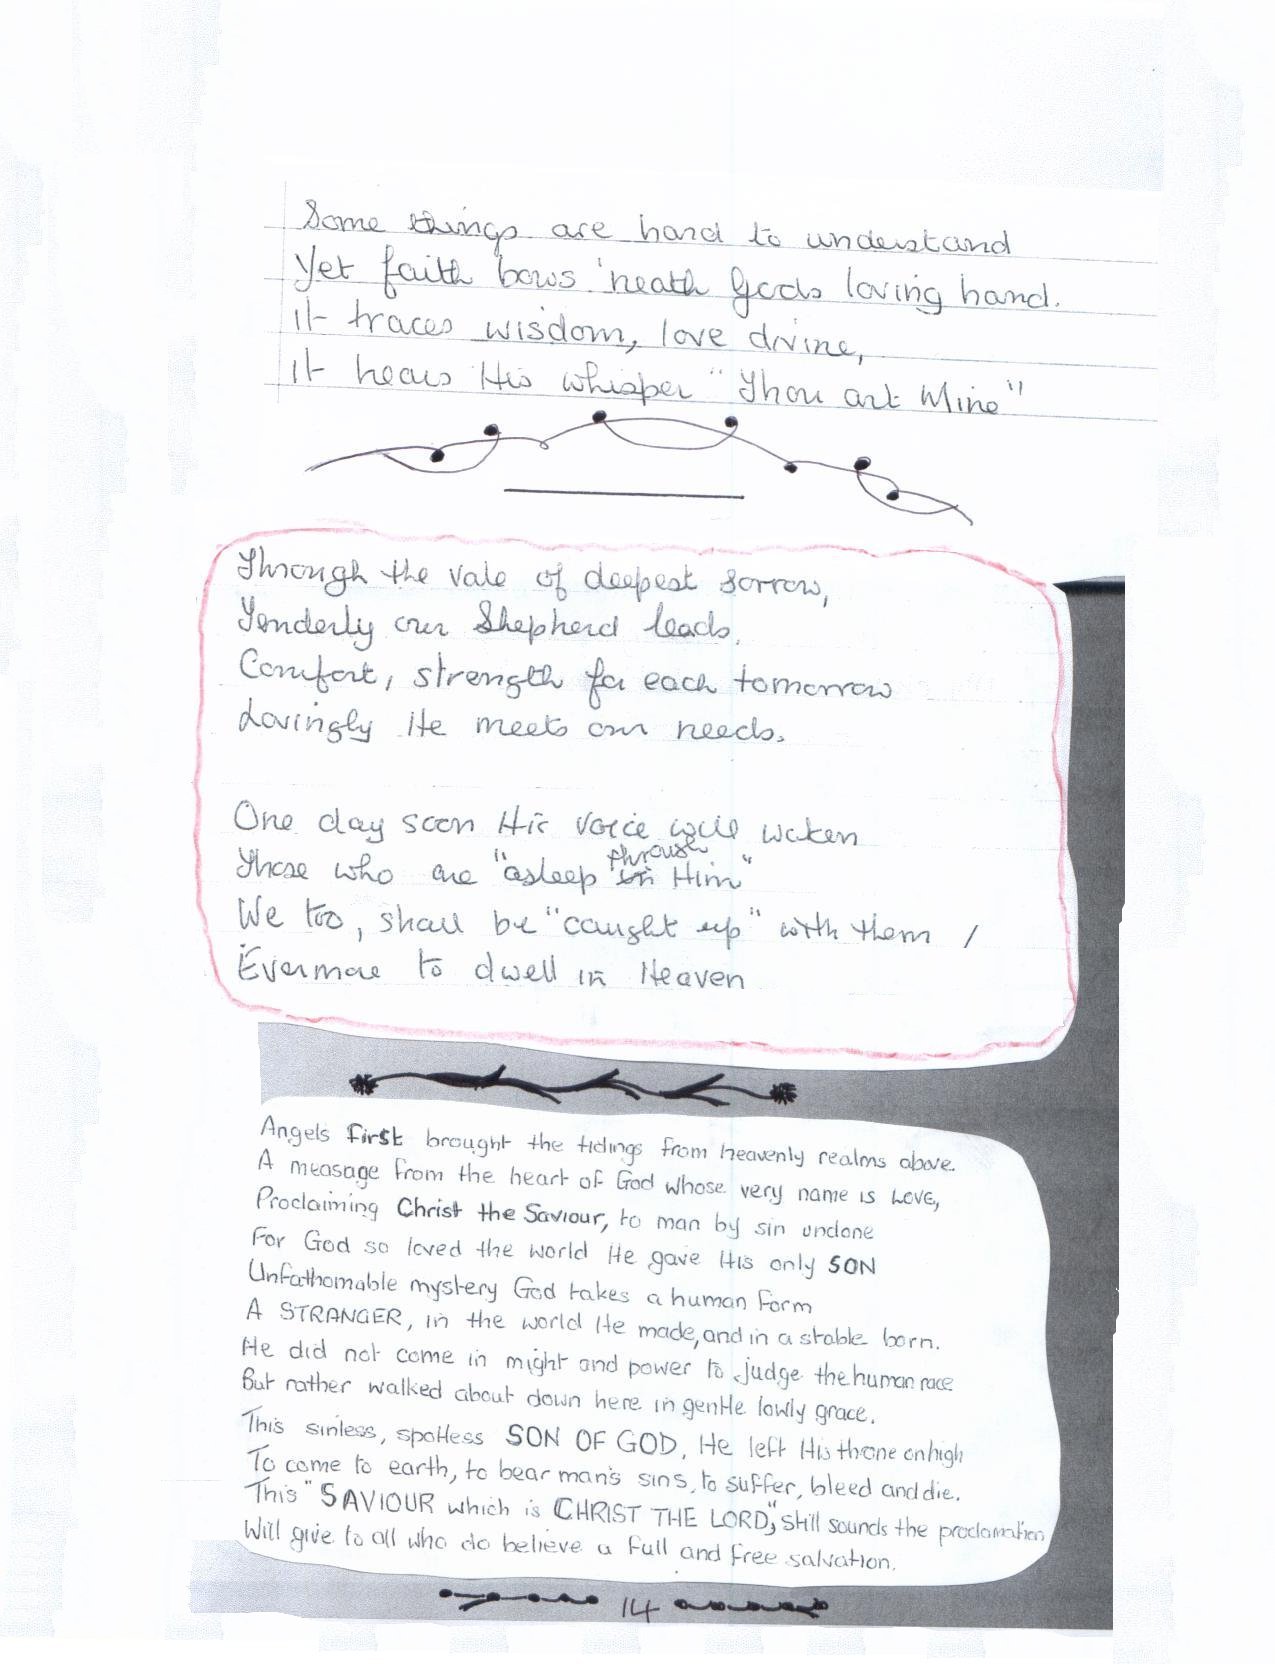 Some things are hard to understand
Yet faith bows 'neath Gods loving hand.
it traces wisdom, love divine,
it hears His whisper "Thou art Mine"
Through the vale of deepest sorrow,
Tenderly our Shepherd leads.
Comfort, strength for each tomorrow
Lovingly He meets our needs.
One day soon His voice will waken
through
Those who are "asleep in Him"
We too, shall be "caught up" with them /
Evermore to dwell in Heaven
Angels first brought the tidings from heavenly realms above.
A message from the heart of God whose very name is LOVE,
Proclaiming Christ the Saviour, to man by sin undone
For God so loved the world He gave His only SON
Unfathomable mystery God takes a human form
A STRANGER, in the world He made, and in a stable born.
He did not come in might and power to judge the human race
But rather walked about down here in gentle lowly grace.
This sinless, spotless SON OF GOD, He left His throne on high
To come to earth, to bear man's sins, to suffer, bleed and die.
This "SAVIOUR which is CHRIST THE LORD," still sounds the proclamation
Will give to all who do believe a full and free salvation.
14